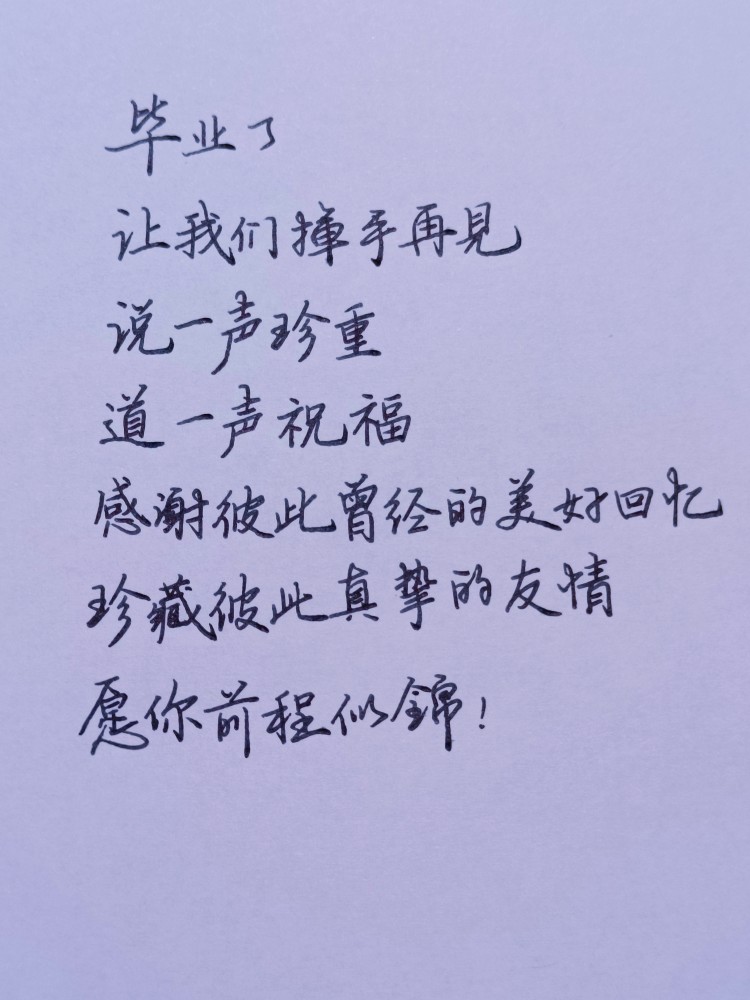 毕业了
让我们揮手再見
说一声珍重
道一声祝福
感谢彼此曾经的美好回忆
珍藏彼此真挚的友情
愿你前程似錦！